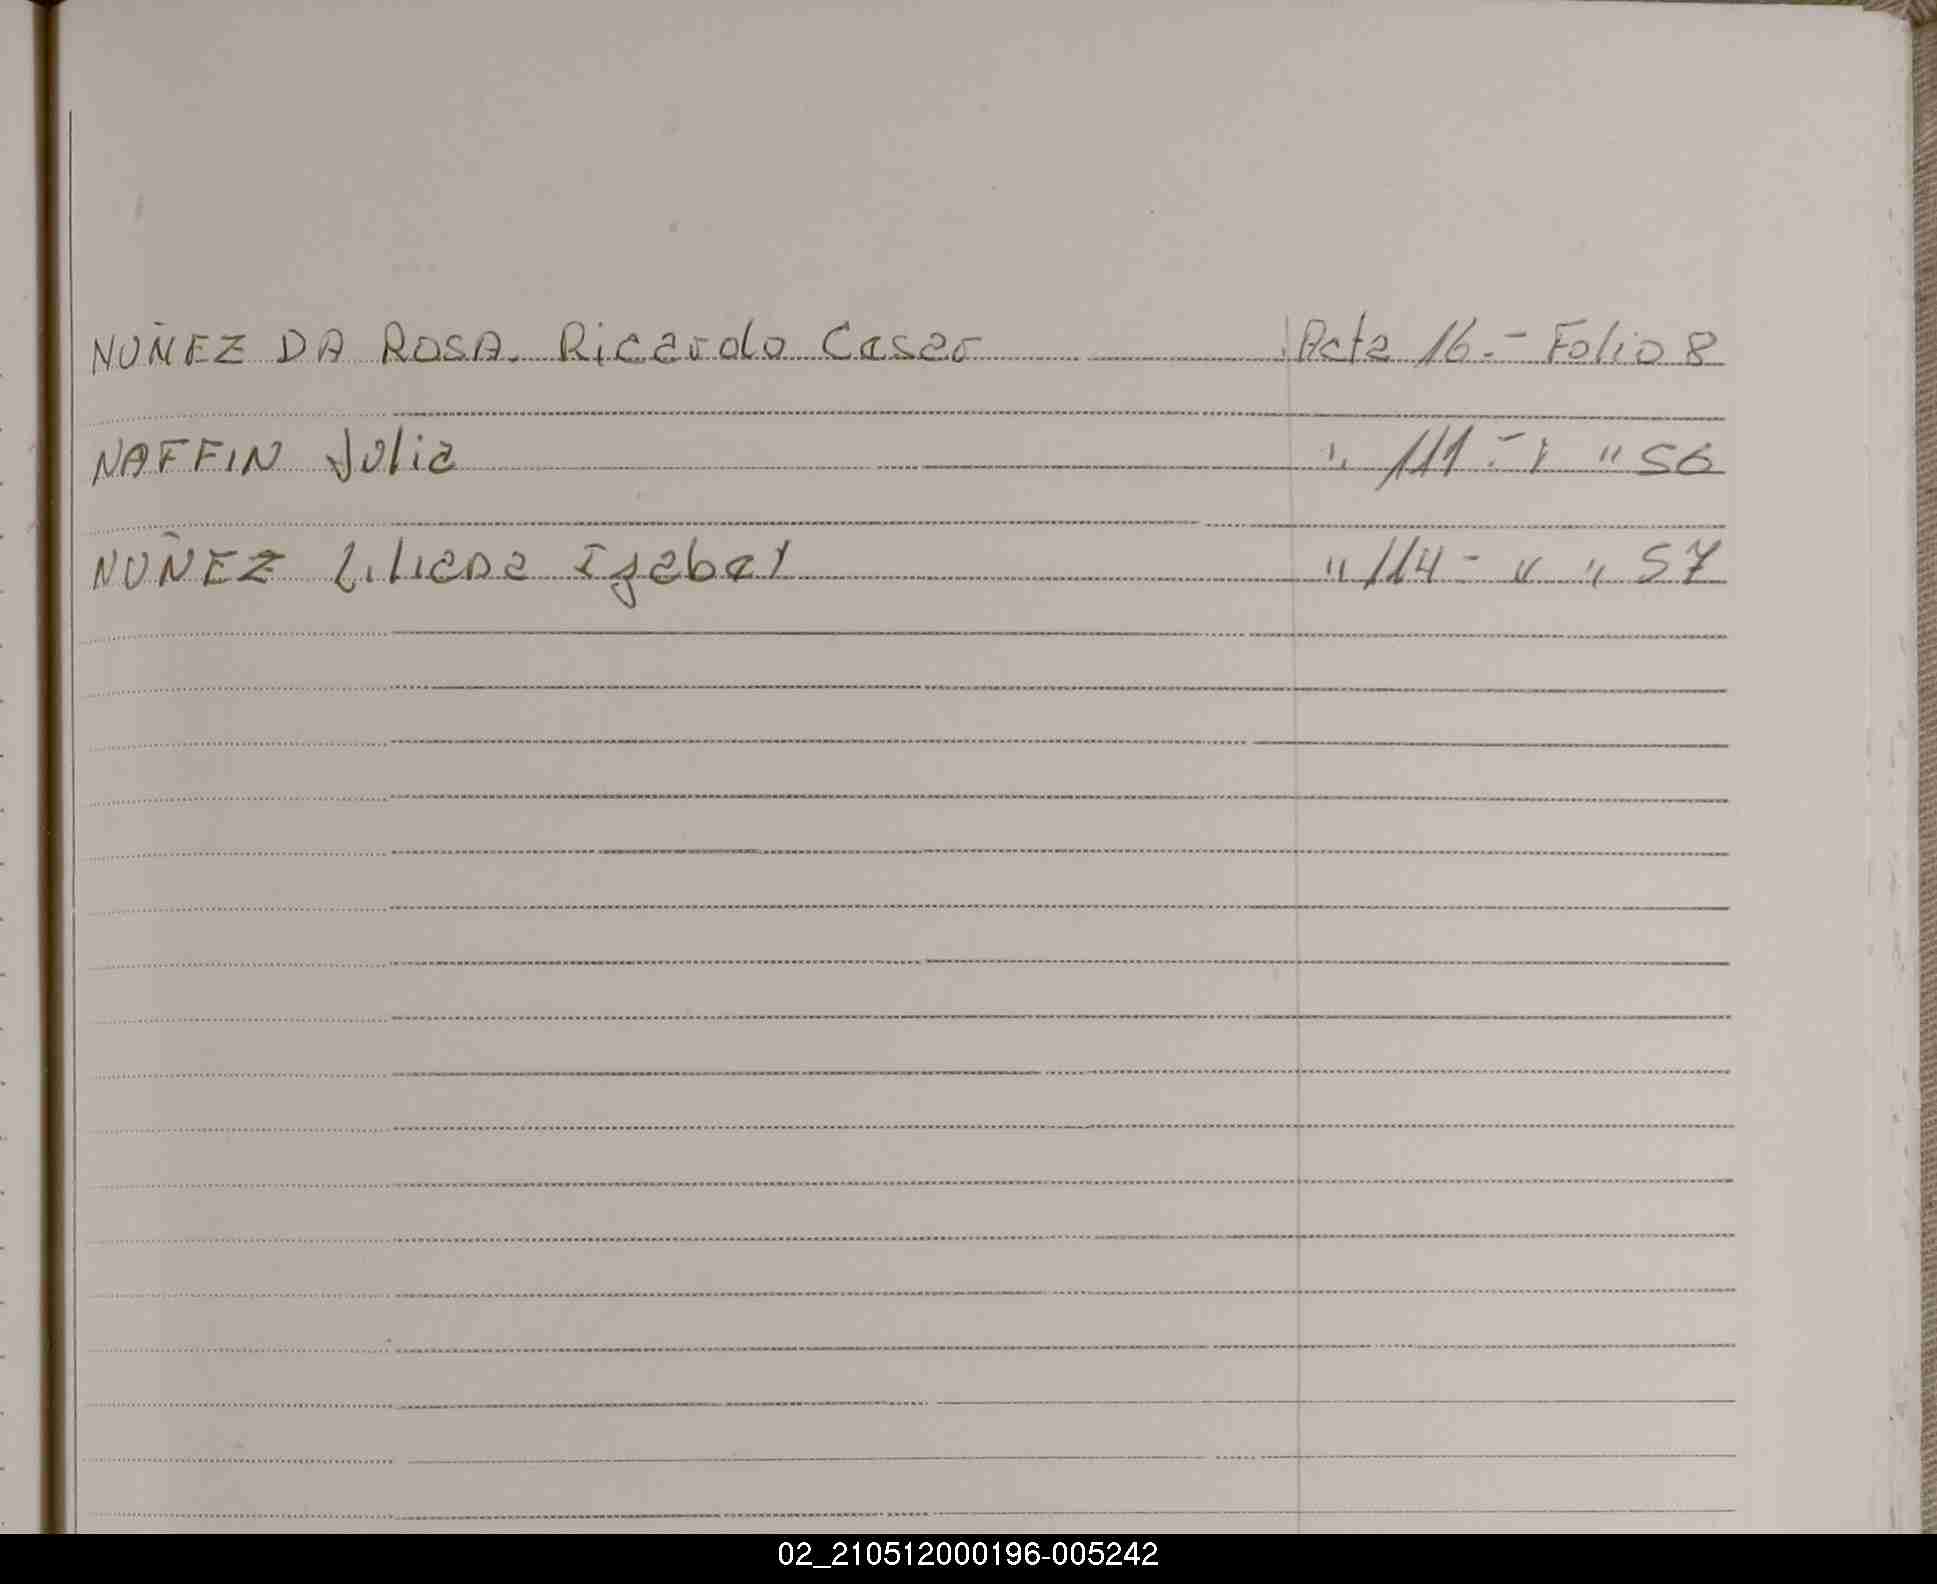 NUÑEZ DA ROSA. Ricardo Cesar Acta 16.- Folio 8
NAFFIN Julia " 111 - " " 56
NUÑEZ Liliana Izabel " 114 - " " 57
02_210512000196-005242